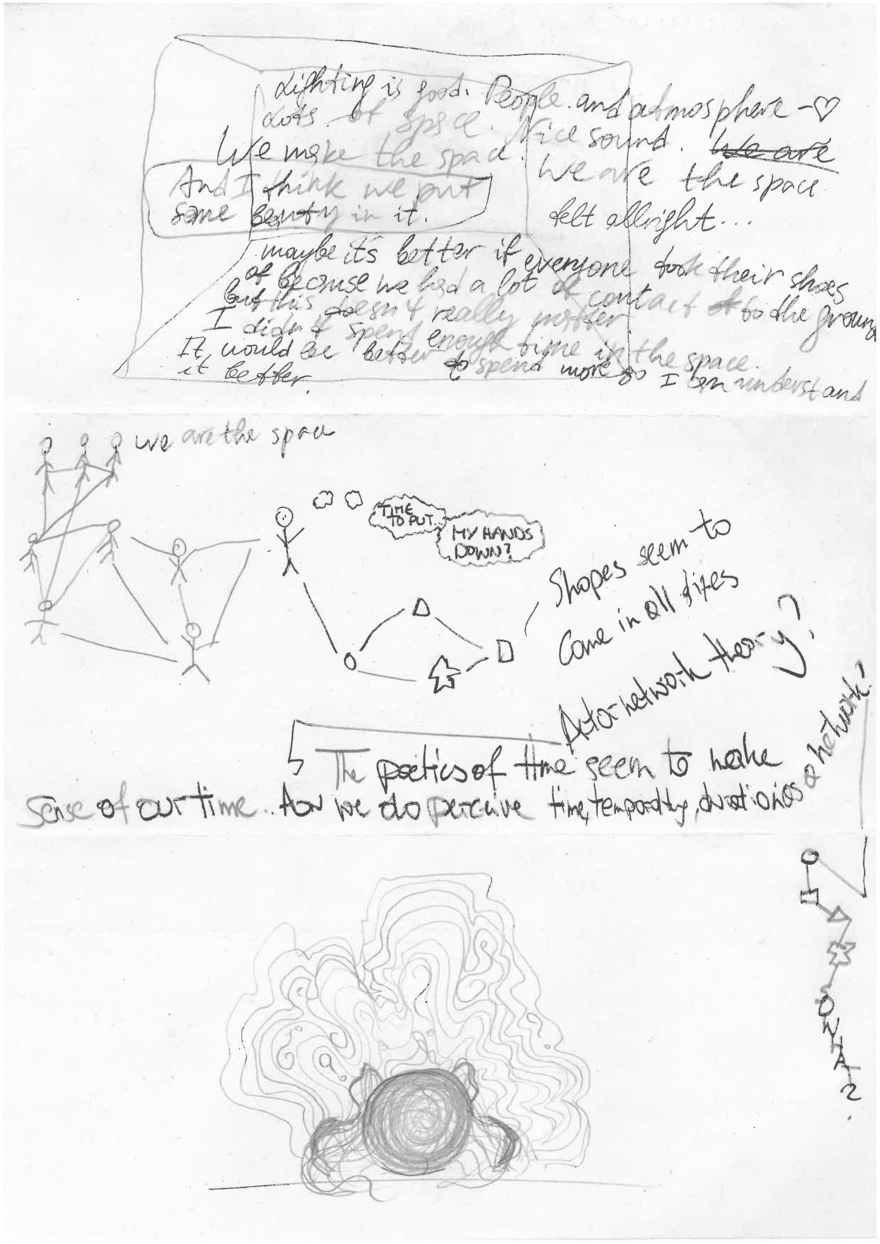 Lighting is good. People and atmosphere - ♡
Lots of space. Nice sound. We are
We make the space. We are the space
And I think we put
some beauty in it. felt allright...
maybe it's better if everyone took their shoes
of because we had a lot of contact to the ground
but this doesn't really matter.
I didn't spend enough time in the space.
It would be better to spend more so I can understand
it better.
we are the space
TIME
TO PUT...
MY HANDS
DOWN?
Shapes seem to
come in all sizes
Actor-network theory?
The poetics of time seem to make
sense of our time... How we do perceive time, temporality, durationics
a network?
SO WHAT?